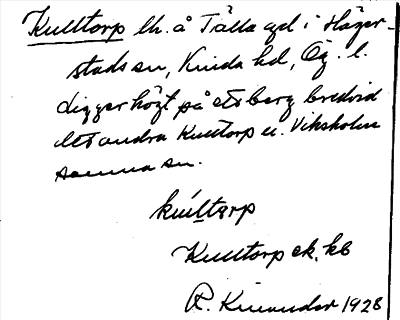 Kulltorp lh. å Tälla gd i Häger-
stads sn, Kinda hd, Ög. l.
Ligger högt på ett berg bredvid
det andra Kulltorp u. Viksholm
samma sn.
kúlltarp
Kulltorp ek. kb
R. Kinander 1928